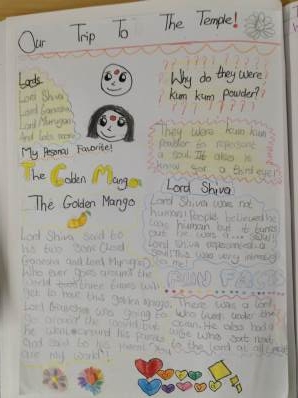 Our Trip To The Temple!
Lords
Lord Shiva
Lord Ganesha
Lord Murugan
And lots more
My Personal Favorite!
The Golden Mango
The Golden Mango
Lord Shiva said to
his two sons (Lord
Ganesha and Lord Murugan)
Who ever goes around the
world three times will
get to have this golden mango.
Lord Murugan was going to
go around the world but
he went around his parents
and said to his parents "you
are my world"!
Why do they were
kum kum powder?
They were kum kum
powder to represent
a soul. It also is
know for a third eye!
Lord Shiva
Lord Shiva was not
human! People believed he
was human but it turns
out he was a
Lord Shiva represented a
soul! This was very interesting
to me!
FUN FACTS
There was a lord
Who lived under the
ocean. He also had a
wife who sat next
to the lord at all times!